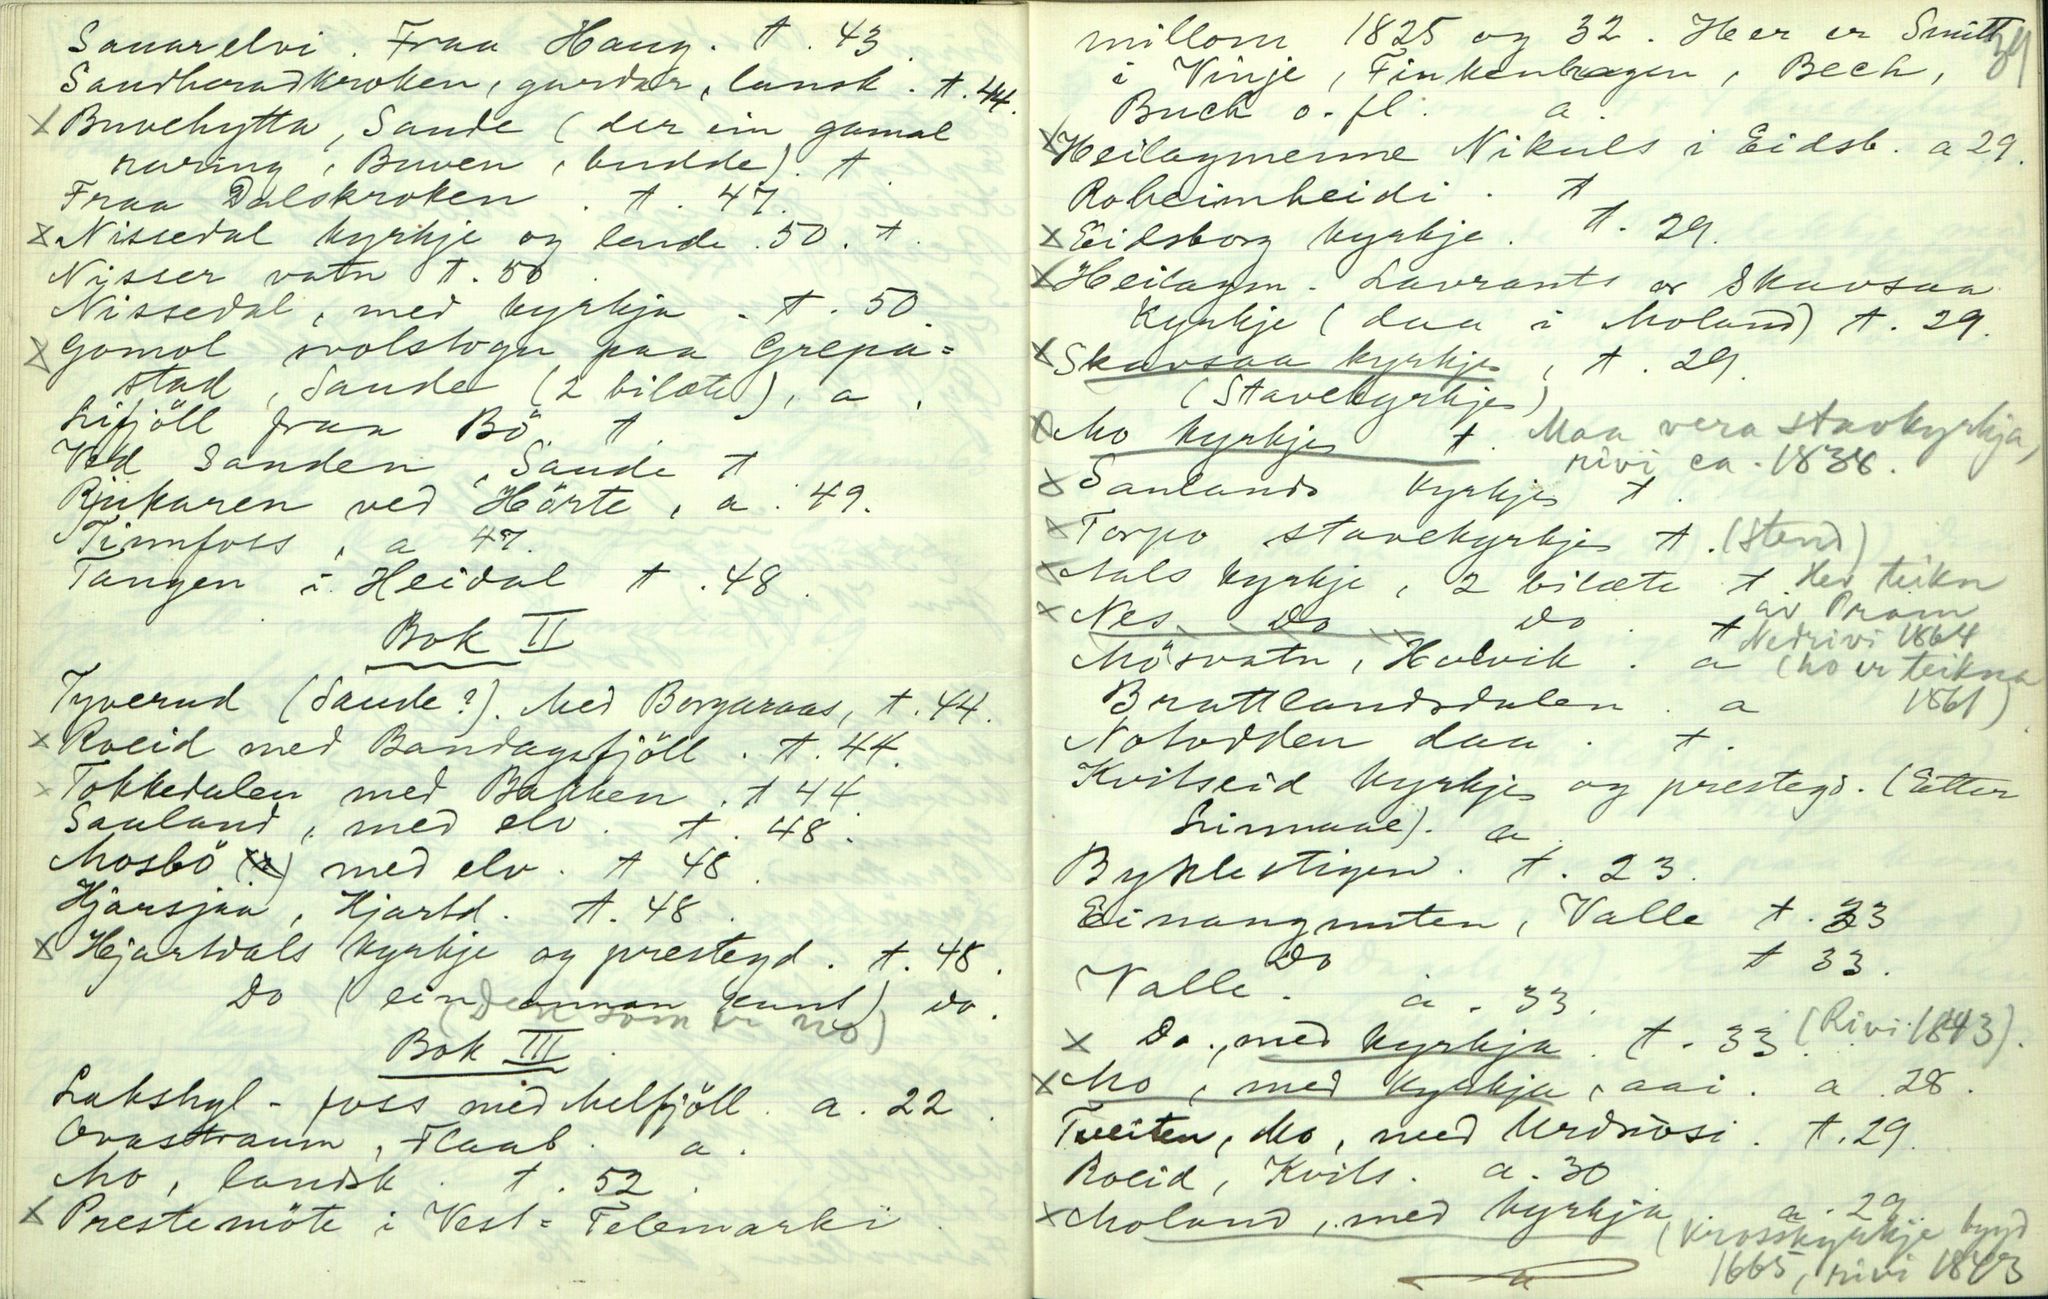 Sauarelvi. Fraa Haug. t. 43
Sandheradkroken, gardar, lansk. t. 44.
x Buvehytta, Sande (der ein gamal
raring, Buven, budde). t.
Fraa Dalskroken. t. 47.
x Nissedal kyrkje og lende. 50. t.
Nisser vatn t. 50
Nissedal, med kyrkja. t. 50
x Gomol svolstogu paa Grepa=
stad, Sande (2 bilæte), a.
Lifjöll fraa Bö. t.
Ved Sanden, Sande t
Rjukaren ved Hörte, a. 49.
Tinnfoss, a 47.
Tangen i Heidal t. 48.
Bok II
Tyverud (Sande?). Med Borgaraas, t. 44.
x Roeid med Bandagsfjöll. t. 44.
x Tokkedalen med Bakken. t 44
Sauland, med elv. t. 48.
Mosbö med elv. t 48.
Hjärsjaa, Hjartd. t. 48.
x Hjartdals kyrkje og prestegd. t. 48.
Do (ein annan kant) do.
(Den som er no)
Bok III
Lakshyl-foss med Melfjöll. a. 22.
Ovastraum, Flaab. a.
Mo, landsk. t. 52.
x Prestemöte i Vest=Telemarki
34
millom 1825 og 32. Her er Smitt
i Vinje, Finkenhagen, Bech,
Buch o. fl. a.
x Heilagmenne Nikuls i Eidsb. a 29.
Roheimheidi. t
x Eidsborg kyrkje. t. 29.
x Heilagm. Lavrants or Skavsaa
kyrkje (daa i Moland) t. 29.
x Skavsaa kyrkje, t. 29.
(Stavekyrkje)
x Mo kyrkje t. Maa vera stavkyrkja,
rivi ca. 1838.
x Saulands kyrkje t.
x Torpo stavekyrkje t. (Stend)
x Aals kyrkje, 2 bilæte t. Her teikn
av Pram
x Nes Do Do. t Nedrivi 1864
Mösvatn, Hovik. a (no er teikna
1861)
Brattlandsdalen. a
Notodden daa. t.
Kvitseid kyrkje og prestegd. (Etter
Linnaae). a.
Byklestigen. t. 23.
Einangnuten, Valle t. 33
Do t 33.
Valle. a. 33.
x Do., med kyrkja. t. 33. (Rivi 1843).
x Mo, med kyrkja, aai. a. 28.
Tveiten, Mo, med Urdbösi. t. 29.
Roeid, Kvits. a. 30
x Moland, med kyrkja a. 29
(Krosskyrkje bygd
1665, rivi 1843